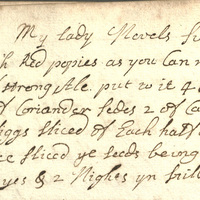 My lady Nevels su
h Red popies as you Can
strong Ale put to it 4
of Coriander sedes 2 of Ca
figgs sliced of Each half
sliced ye seeds being
yes & 2 Nights yn still